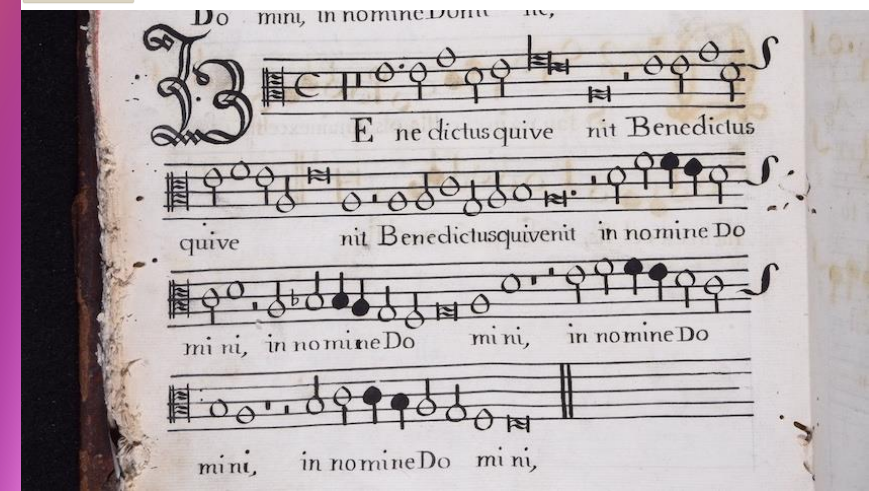 Do mini, in nomine Domi ne,
BE ne dictus quive nit Benedictus
quive nit Benedictus quivenit in nomine Do
mi ni, in nomine Do mi ni, in nomine Do
mi ni, in nomine Do mi ni,